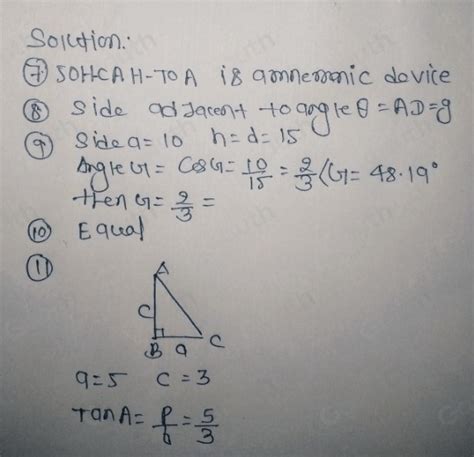 Solution:
⑦ SOH-CAH-TOA is amnemonic device
⑧ Side adjacent to angle θ = AD = g
⑨ Side a = 10 h = d = 15
Angle G = Cos G = 10/15 = 2/3 (G = 48.19°
then G = 2/3 =
⑩ Equal
⑪
A
C
B a C
a = 5 C = 3
Tan A = P/b = 5/3